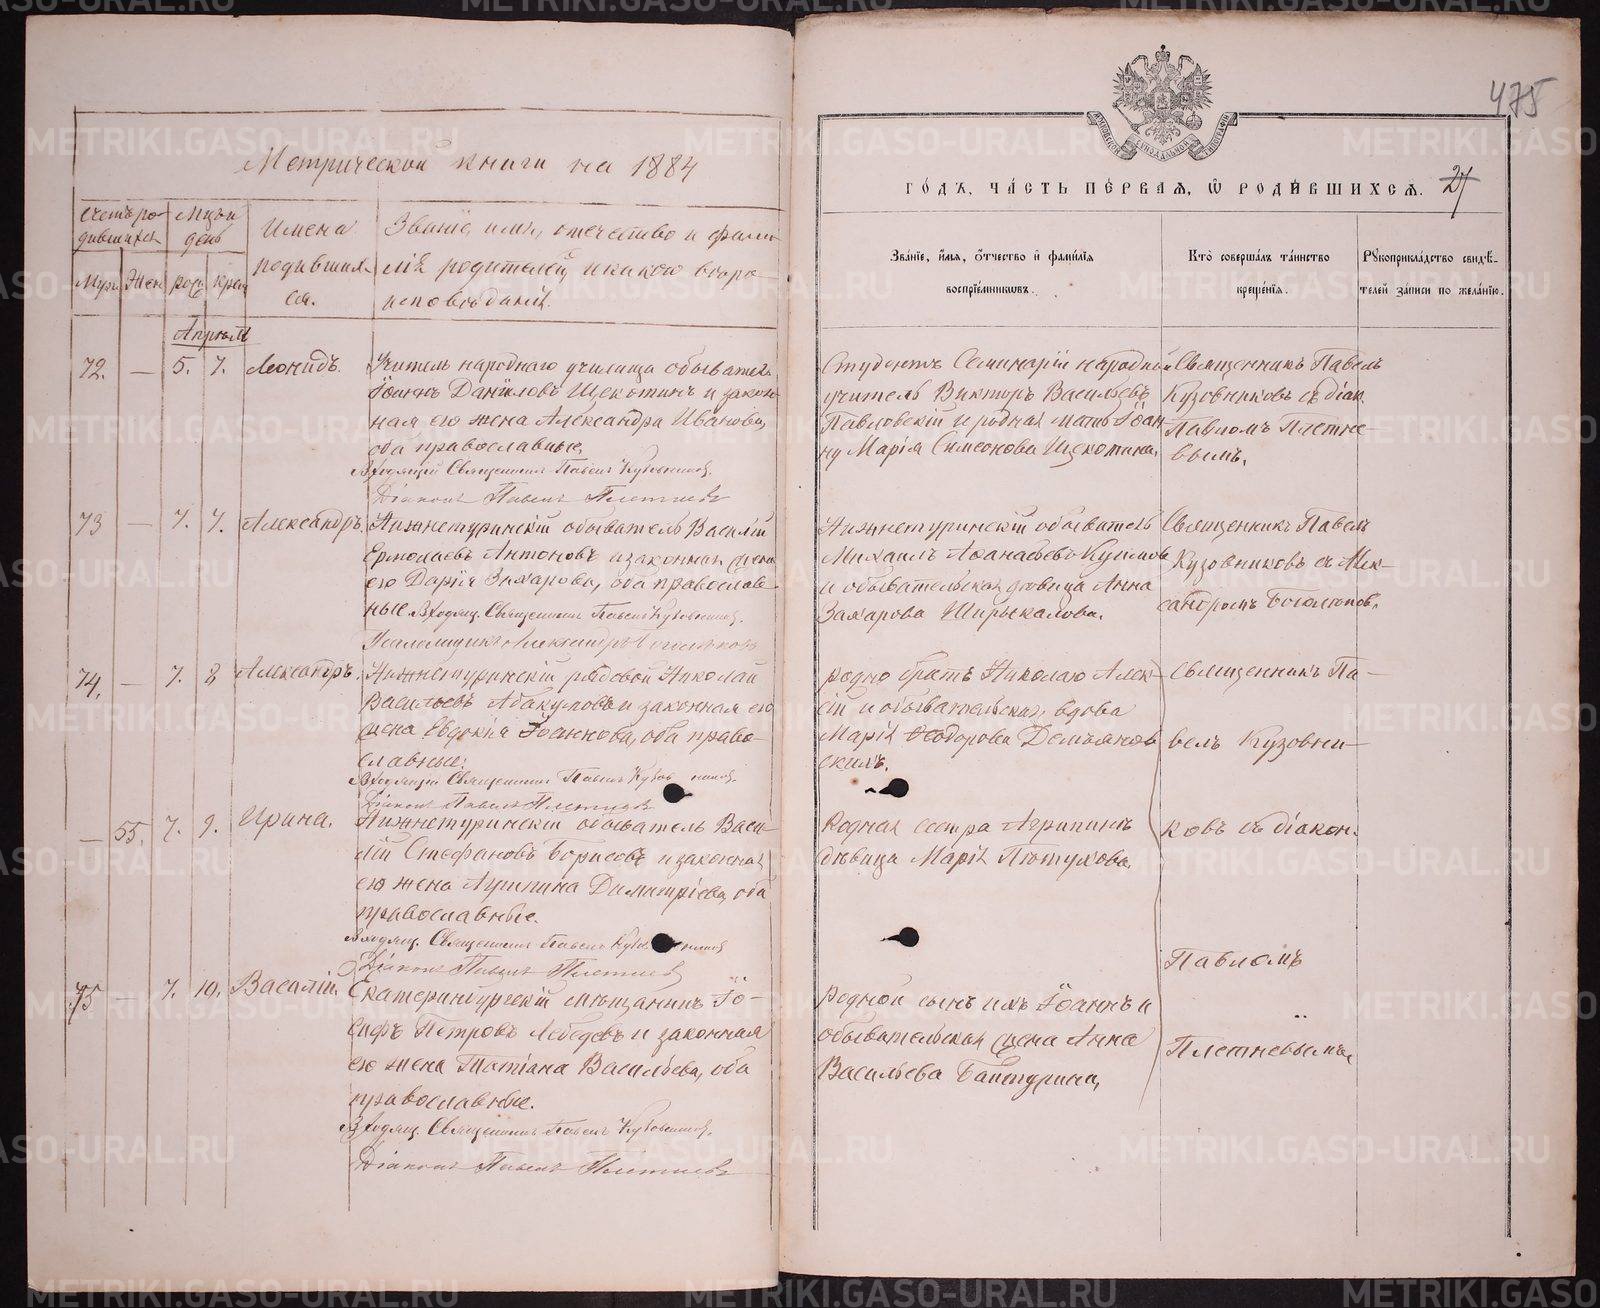 475
Метрической книги на 1884
ГО́ДЪ, ЧА́СТЬ ПЕ́РВАЯ, Ѡ РОДИ́ВШИХСЯ. 27
Счетъ ро-
дившихся
Мцъ и
день
Имена
родивших-
ся.
Званіе, имя, отчество и фами-
лія родителей, и какого вѣро-
исповѣданія.
Муж. Жен. рож. крещ.
Зва́ніе, и́мя, ѻ҆́тчество и҆ фамі́лія
воспріе́мниковъ.
Кто̀ соверша́лъ та́инство
креще́нія.
Рꙋкоприкла́дство свидѣ́-
телей за́писи по жела́нію.
Апрѣль
72. — 5. 7. Леонидъ.
Учитель народнаго училища обыватель
Іоаннъ Даниловъ Щекотинъ и закон-
ная его жена Александра Иванова,
оба православные.
Священникъ Павелъ Кузовниковъ.
Діаконъ Павелъ Плетневъ
Студентъ Семинаріи народный
учитель Викторъ Васильевъ
Павловскій и родная мать Іоан-
ну Марія Симеонова Щекотина.
Священникъ Павелъ
Кузовниковъ съ діак.
Павломъ Плетне-
вымъ.
73 — 7. 7. Александръ.
Нижнетуринскій обыватель Василій
Ермолаевъ Антоновъ и законная жена
его Дарія Захарова, оба православ-
ные. Священникъ Павелъ Кузовниковъ.
Псаломщикъ Александръ Боголюбовъ
Нижнетуринскій обыватель
Михаилъ Аѳанасьевъ
и обывательская дѣвица Анна
Захарова Ширыкалова.
Священникъ Павелъ
Кузовниковъ съ Алек-
сандромъ Боголюбов.
74. — 7. 8. Александръ.
Нижнетуринскій рядовой Николай
Васильевъ Абакумовъ и законная его
жена Евдокія Іоаннова, оба право-
славные.
Священникъ Павелъ Кузовниковъ.
Діаконъ Павелъ Плетневъ
родной братъ Николаю Алек-
сій и обывательская вдова
Марія Ѳеодорова Демьянов-
скихъ.
Священникъ Па-
велъ Кузовни-
— 55. 7. 9. Ирина.
Нижнетуринскій обыватель Васи-
лій Стефановъ Борисовъ и законная
его жена Агрипина Димитріева, оба
православные.
Священникъ Павелъ Кузовниковъ
Діаконъ Павелъ Плетневъ
Родная сестра Агрипинѣ
дѣвица Марія Пѣтухова.
ковъ съ діакон.
75 — 7. 10. Василій.
Екатеринбургскій мѣщанинъ Іо-
сифъ Петровъ Лебедевъ и законная
его жена Татіана Васильева, оба
православные.
Священникъ Павелъ Кузовниковъ.
Діаконъ Павелъ Плетневъ
Родной сынъ ихъ Іоаннъ и
обывательская жена Анна
Васильева Байтурина.
Павломъ
Плетневымъ.
METRIKI.GASO-URAL.RU